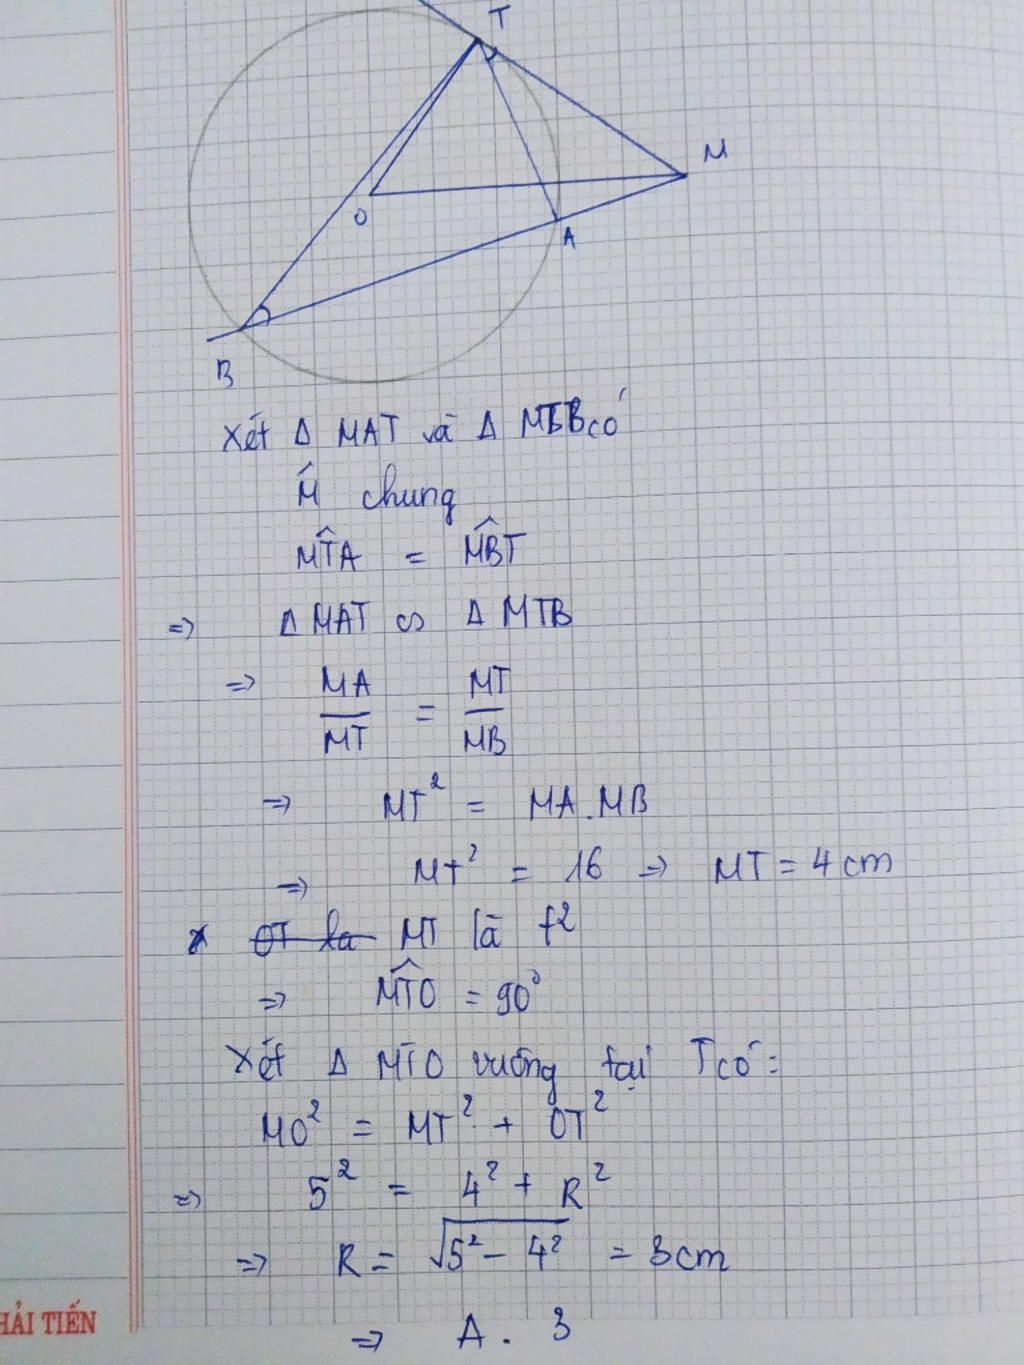 T
M
O
A
B
Xét Δ MAT và Δ MTB có
M̂ chung
MT̂A = MB̂T
=> Δ MAT ∽ Δ MTB
=> MA/MT = MT/MB
=> MT² = MA.MB
=> MT² = 16 => MT = 4 cm
MT là t²
=> MT̂O = 90°
Xét Δ MTO vuông tại T có:
MO² = MT² + OT²
=> 5² = 4² + R²
=> R = √5² - 4² = 3cm
=> A. 3
HẢI TIẾN